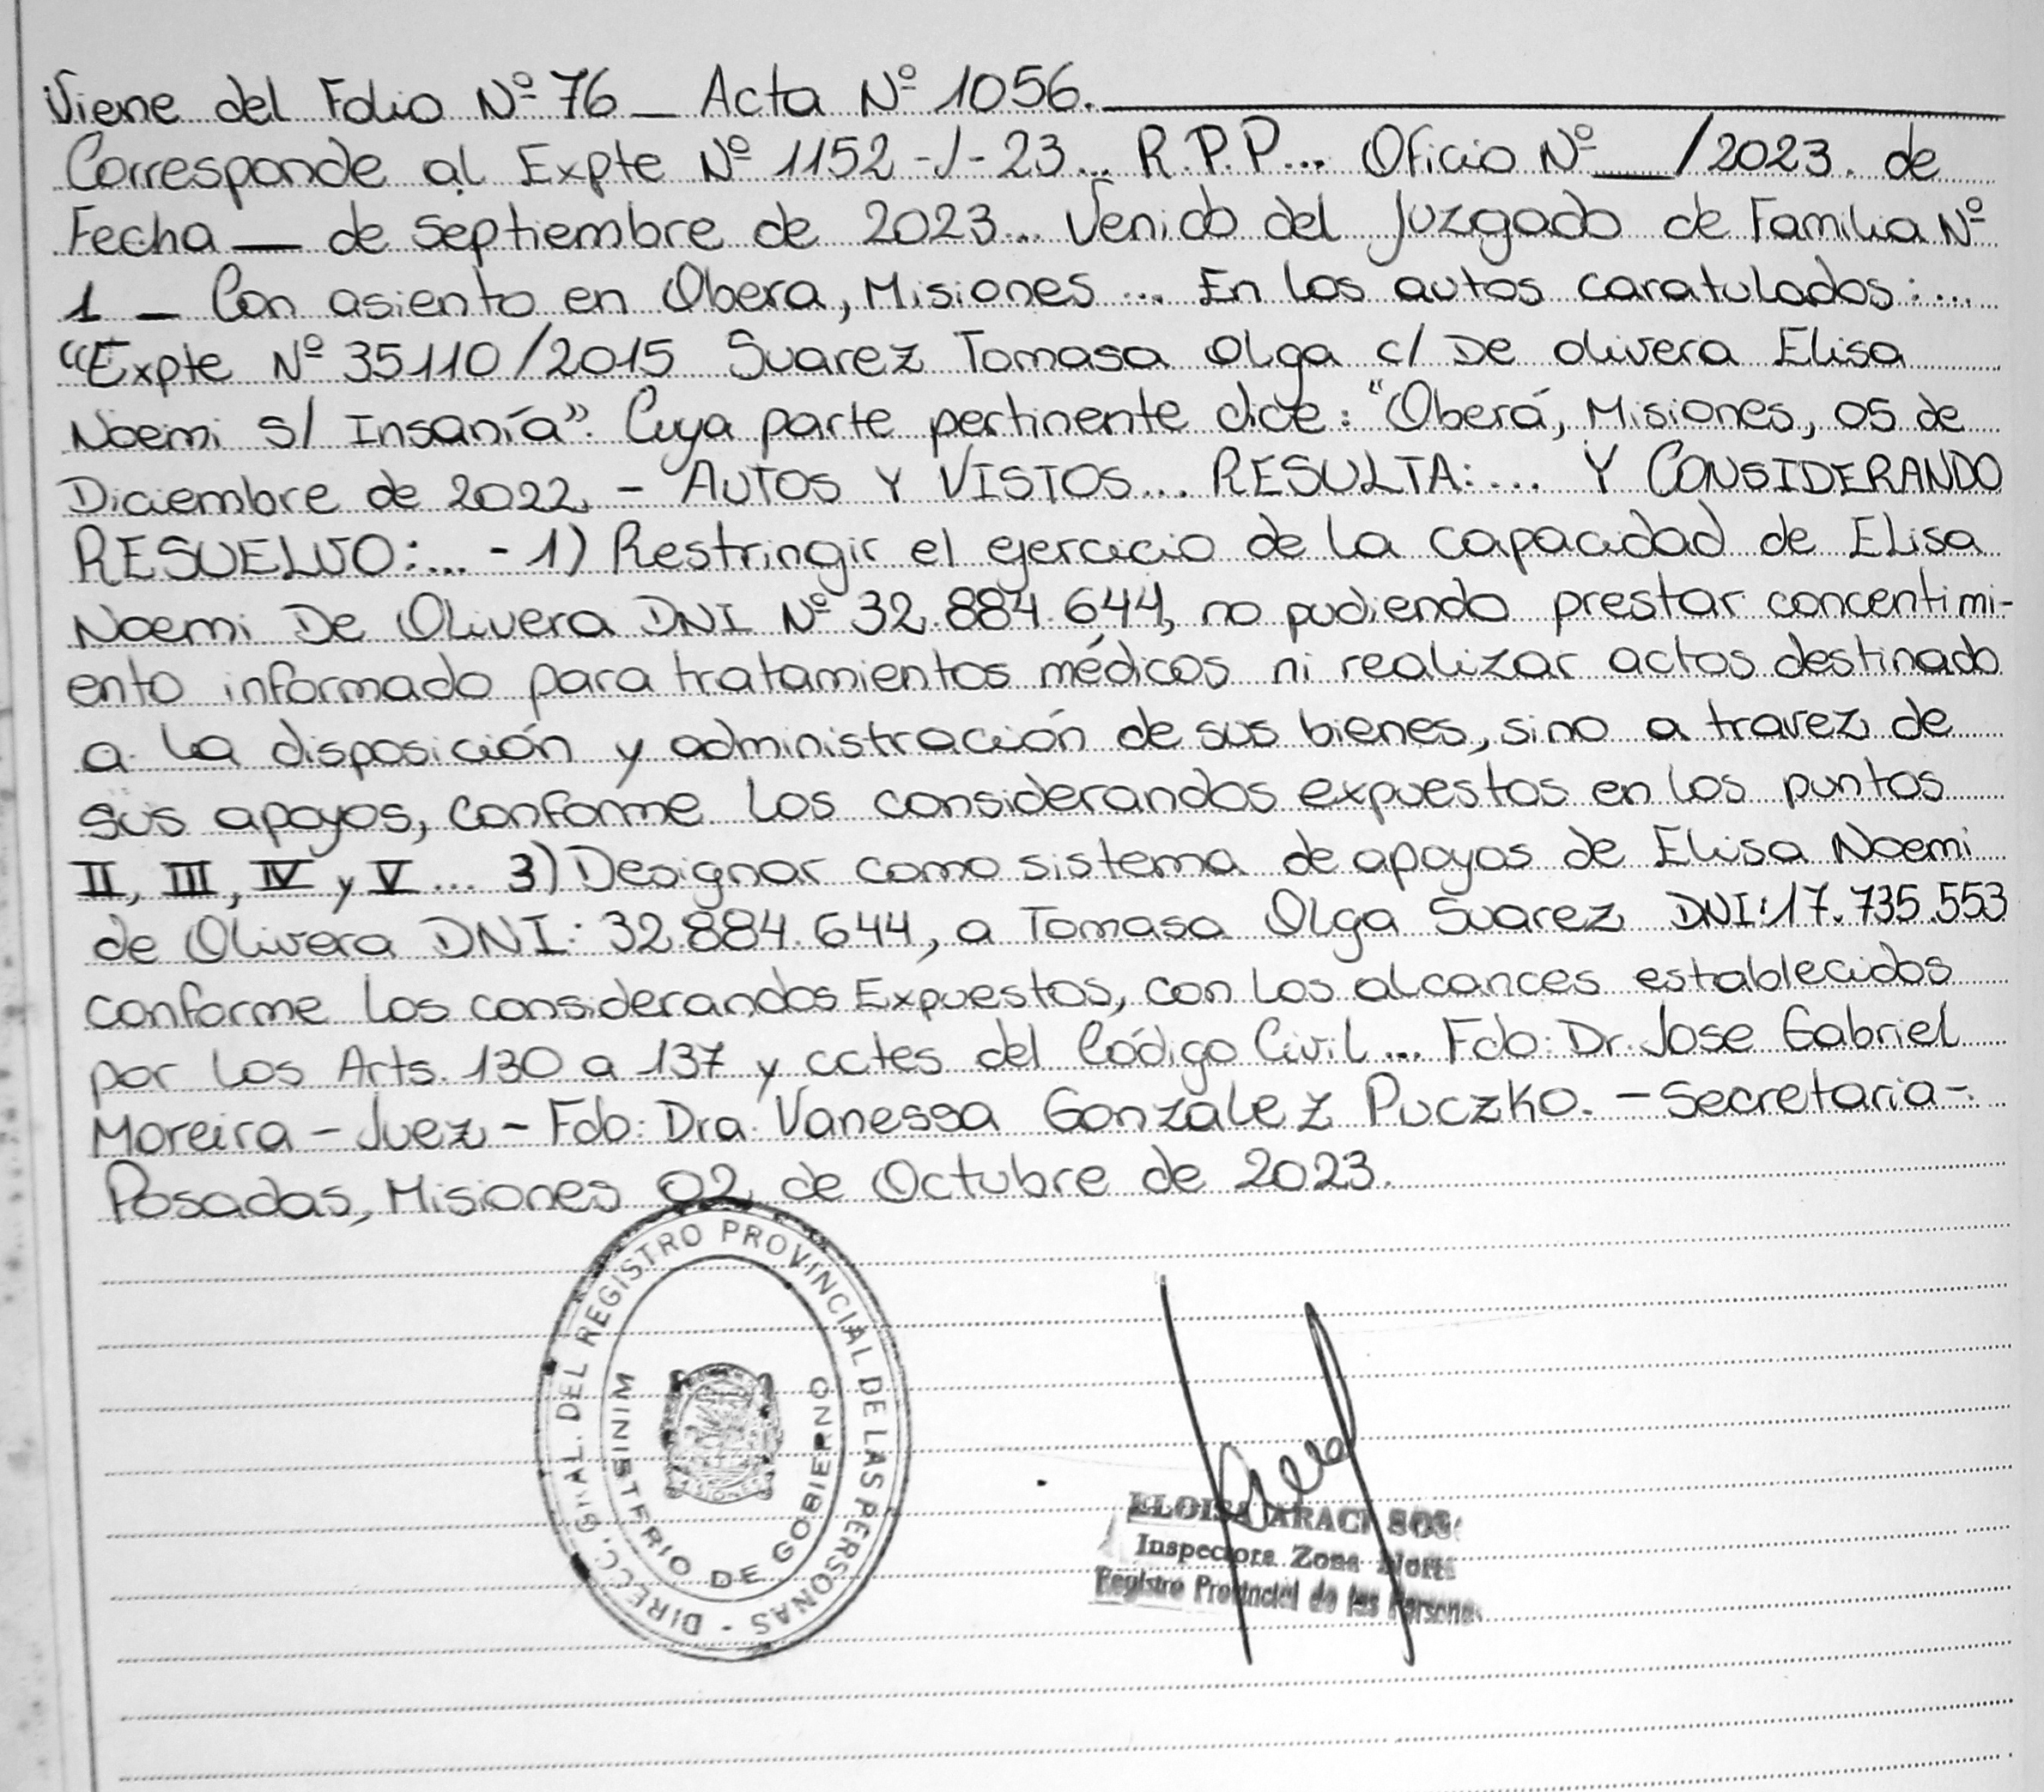 Viene del Folio Nº 76 _ Acta Nº 1056.
Corresponde al Expte Nº 1152 -J- 23... R.P.P... Oficio Nº ___/2023. de
Fecha __ de septiembre de 2023... Venido del Juzgado de Familia Nº
1 _ Con asiento en Obera, Misiones ... En los autos caratulados:...
“Expte Nº 35110/2015 Suarez Tomasa Olga c/ De olivera Elisa
Noemi s/ Insanía”. Cuya parte pertinente dice: “Oberá, Misiones, 05 de
Diciembre de 2022. - AUTOS Y VISTOS... RESULTA:... Y CONSIDERANDO
RESUELVO:... - 1) Restringir el ejercicio de la capacidad de Elisa
Noemi De Olivera DNI Nº 32.884.644, no pudiendo prestar concentimi-
ento informado para tratamientos médicos ni realizar actos destinado
a la disposición y administración de sus bienes, sino a travez de
sus apoyos, conforme los considerandos expuestos en los puntos
II, III, IV y V ... 3) Designar como sistema de apoyos de Elisa Noemi
de Olivera DNI: 32.884.644, a Tomasa Olga Suarez DNI: 17.735.553
conforme los considerandos Expuestos, con los alcances establecidos
por los Arts. 130 a 137 y cctes del Código Civil ... Fdo: Dr. Jose Gabriel
Moreira - Juez - Fdo: Dra. Vanessa Gonzalez Puczko. - Secretaria -.
Posadas, Misiones 02 de Octubre de 2023.
DIRECC. GRAL. DEL REGISTRO PROVINCIAL DE LAS PERSONAS -
MINISTERIO DE GOBIERNO
MISIONES
ELOISA ARACI
Inspectora Zona Norte
Registro Provincial de las Persona